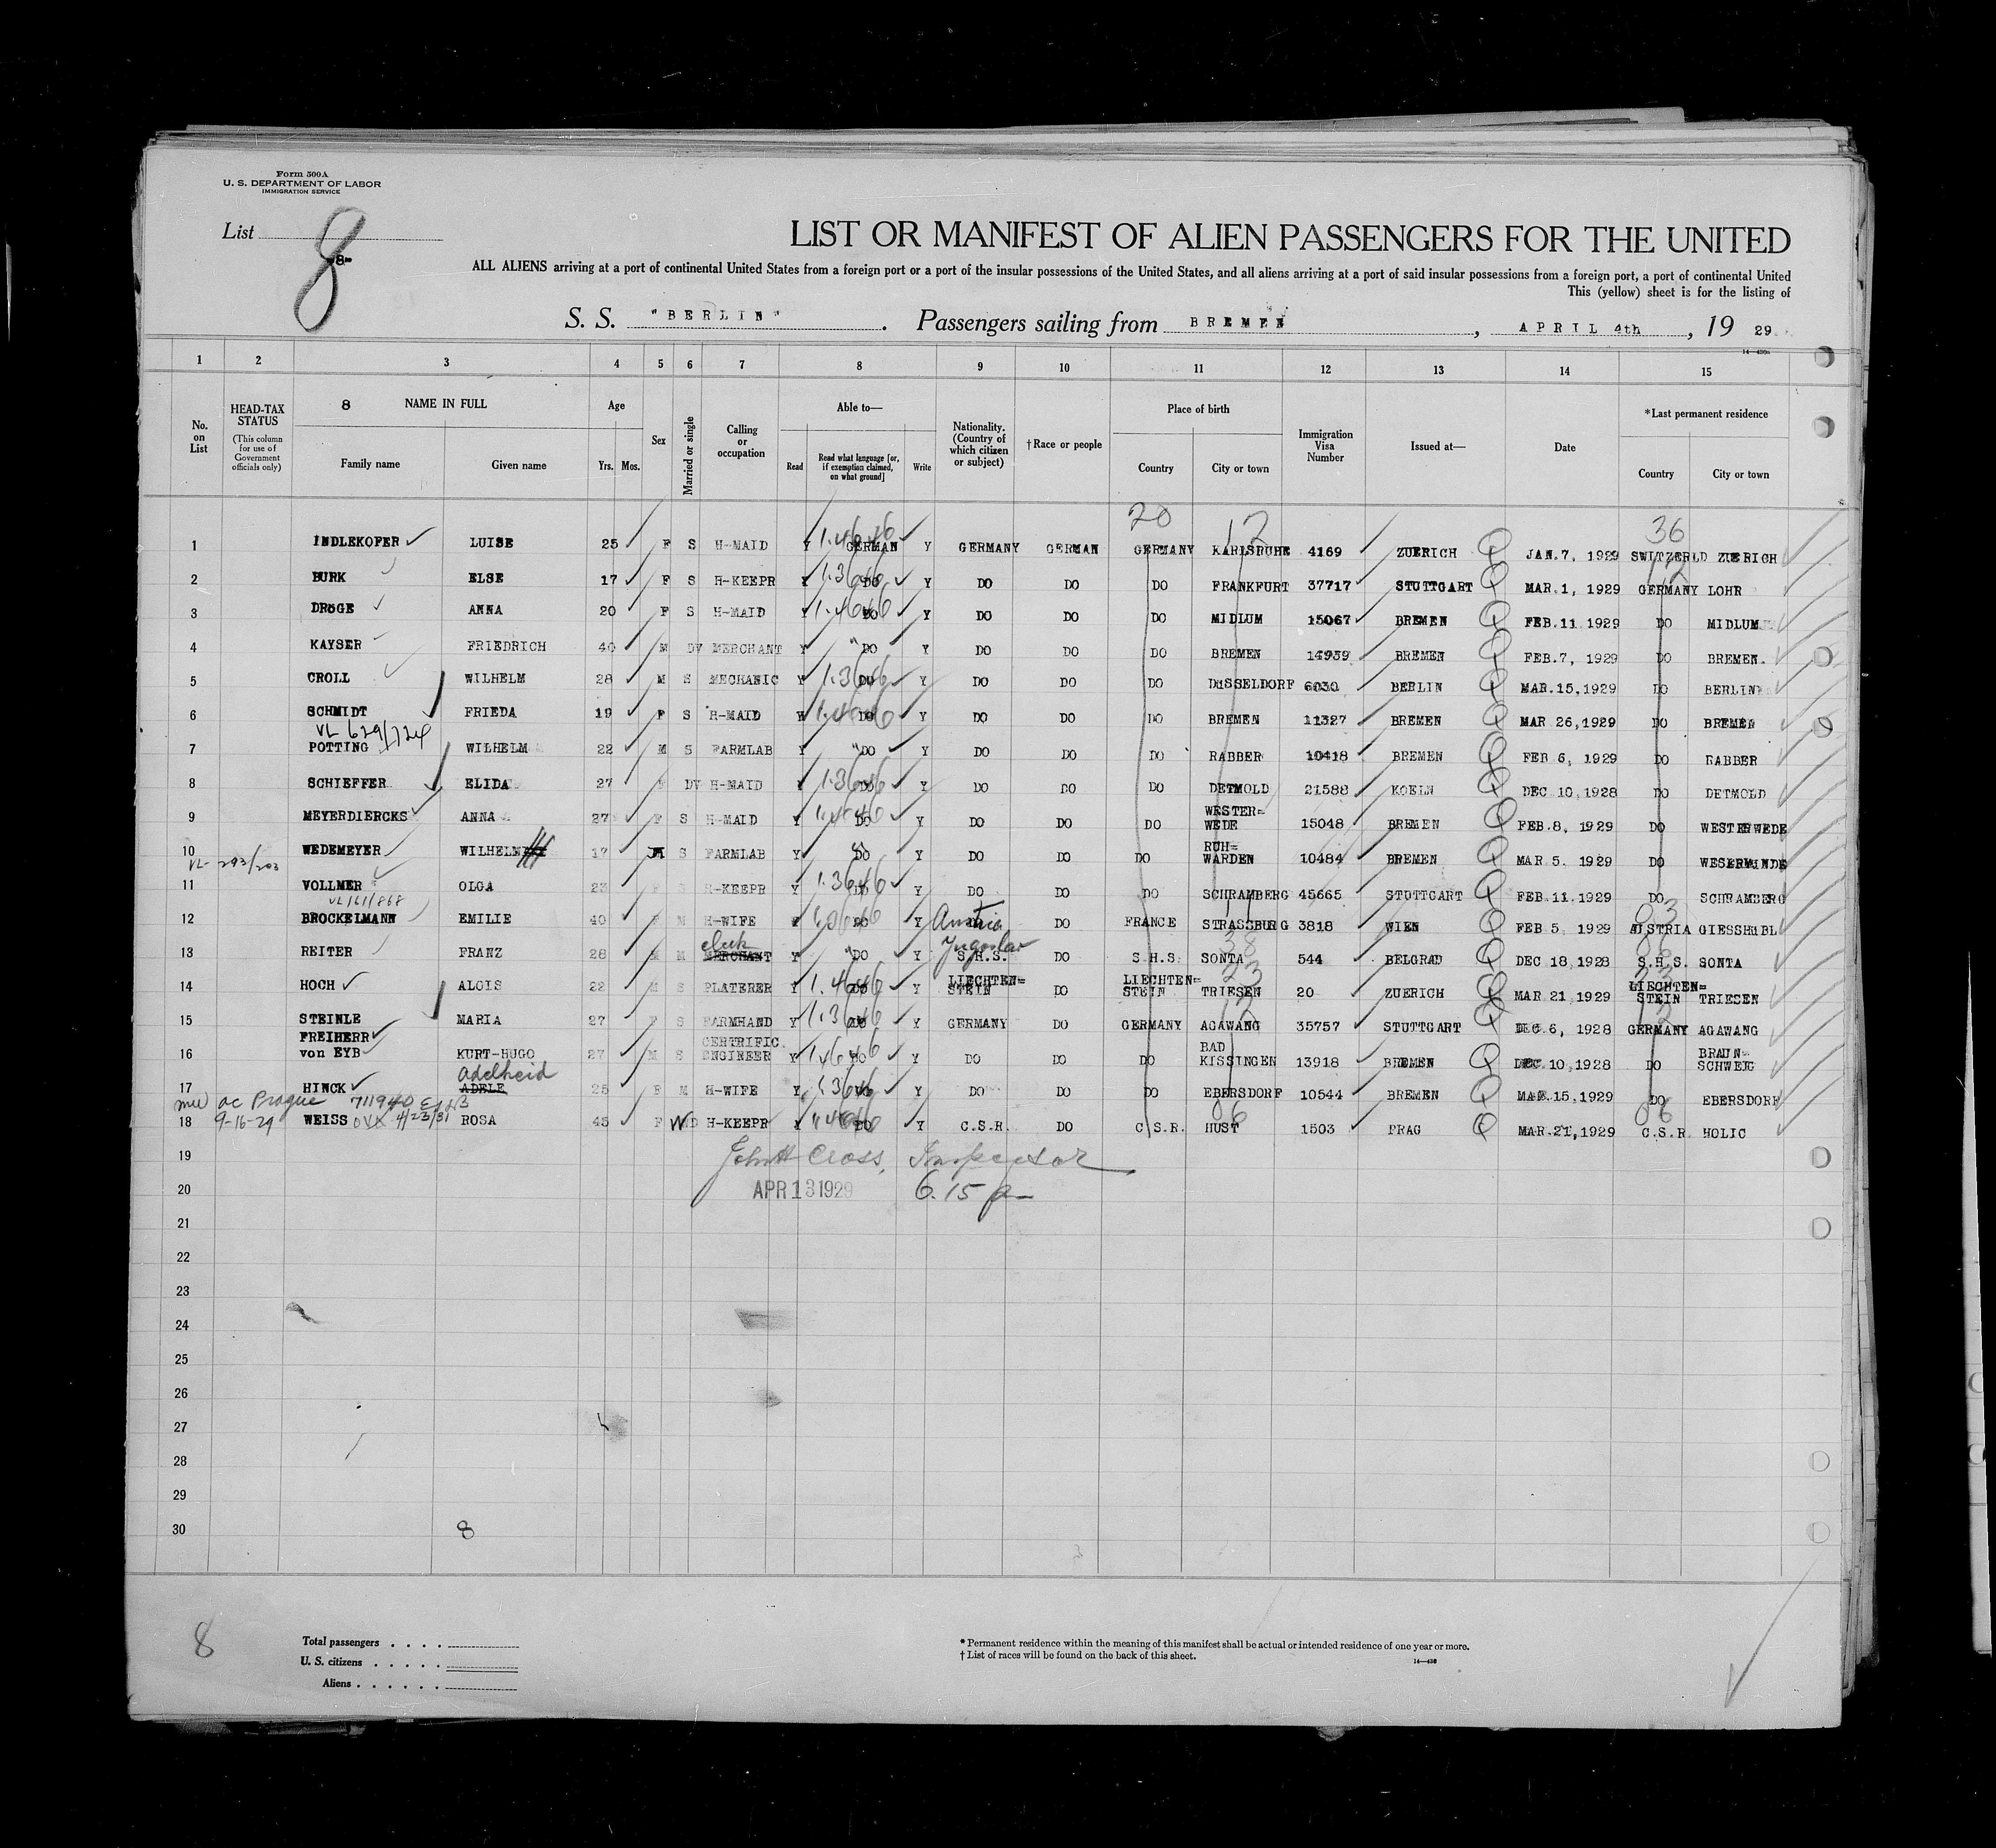 Form 500A
U. S. DEPARTMENT OF LABOR
IMMIGRATION SERVICE
List 8
-8-
LIST OR MANIFEST OF ALIEN PASSENGERS FOR THE UNITED
ALL ALIENS arriving at a port of continental United States from a foreign port or a port of the insular possessions of the United States, and all aliens arriving at a port of said insular possessions from a foreign port, a port of continental United
This (yellow) sheet is for the listing of
S. S. "BERLIN". Passengers sailing from BREMEN, APRIL 4th, 19 29
1 2 3 4 5 6 7 8 9 10 11 12 13 14 15
No. on List
HEAD-TAX STATUS (This column for use of Government officials only)
8 NAME IN FULL
Family name Given name
Age
Yrs. Mos.
Sex
Married or single
Calling or occupation
Able to—
Read Read what language [or, if exemption claimed, on what ground] Write
Nationality. (Country of which citizen or subject)
†Race or people
Place of birth
Country City or town
Immigration Visa Number
Issued at—
Date
*Last permanent residence
Country City or town
20 12 36
1 INDLEKOFER LUISE 25 F S H-MAID Y GERMAN Y GERMANY GERMAN GERMANY KARLSRUHE 4169 ZUERICH JAN.7, 1929 SWITZERLD ZUERICH
2 BURK ELSE 17 F S H-KEEPR Y DO Y DO DO DO FRANKFURT 37717 STUTTGART MAR.1, 1929 GERMANY LOHR
3 DRöGE ANNA 20 F S H-MAID Y DO Y DO DO DO MIDLUM 15067 BREMEN FEB.11 1929 DO MIDLUM
4 KAYSER FRIEDRICH 40 M DV MERCHANT Y DO Y DO DO DO BREMEN 14939 BREMEN FEB.7, 1929 DO BREMEN
5 CROLL WILHELM 28 M S MECHANIC Y DO Y DO DO DO DüSSELDORF 6030 BERLIN MAR.15,1929 DO BERLIN
6 SCHMIDT FRIEDA 19 F S H-MAID Y DO Y DO DO DO BREMEN 11327 BREMEN MAR 26,1929 DO BREMEN
VL 629/724
7 POTTING WILHELM 22 M S FARMLAB Y DO Y DO DO DO RABBER 10418 BREMEN FEB 6, 1929 DO RABBER
8 SCHIEFFER ELIDA 27 F DV H-MAID Y DO Y DO DO DO DETMOLD 21588 KOELN DEC 10,1928 DO DETMOLD
9 MEYERDIERCKS ANNA 27 F S H-MAID Y DO Y DO DO DO WESTER=WEDE 15048 BREMEN FEB.8, 1929 DO WESTERWEDE
10 WEDEMEYER WILHELM 17 M S FARMLAB Y DO Y DO DO DO RUH=WARDEN 10484 BREMEN MAR 5. 1929 DO WESERMüNDE
VL- 293/203
11 VOLLMER OLGA 23 F S H-KEEPR Y DO Y DO DO DO SCHRAMBERG 45665 STUTTGART FEB.11.1929 DO SCHRAMBERG
VL 161/868
12 BROCKELMANN EMILIE 40 F M H-WIFE Y DO Y Austria DO FRANCE STRASSBURG 3818 WIEN FEB 5 1929 AUSTRIA GIESSHüBL
clerk Yugoslav
13 REITER FRANZ 28 M M MERCHANT Y DO Y S.H.S. DO S.H.S. SONTA 544 BELGRAD DEC 18,1928 S.H.S. SONTA
14 HOCH ALOIS 22 M S PLATERER Y DO Y LIECHTEN=STEIN DO LIECHTEN=STEIN TRIESEN 20 ZUERICH MAR 21,1929 LIECHTEN=STEIN TRIESEN
15 STEINLE MARIA 27 F S FARMHAND Y DO Y GERMANY DO GERMANY AGAWANG 35757 STUTTGART DEC.6, 1928 GERMANY AGAWANG
16 FREIHERR von EYB KURT-HUGO 27 M S CERTRIFIC. ENGINEER Y DO Y DO DO DO BAD KISSINGEN 13918 BREMEN DEC.10,1928 DO BRAUN=SCHWEIG
Adelheid
17 HINCK ADELE 25 F M H-WIFE Y DO Y DO DO DO EBERSDORF 10544 BREMEN MAR.15,1929 DO EBERSDORF
ac Prague 711940
9-16-29 4/23/31
18 WEISS ROSA 45 F WD H-KEEPR Y DO Y C.S.R. DO C.S.R. HUST 1503 PRAG MAR.21,1929 C.S.R. HOLIC
19 John H Cross, Inspector
20 APR 13 1929 6.15 p
21
22
23
24
25
26
27
28
29
30 8
8
Total passengers
U. S. citizens
Aliens
* Permanent residence within the meaning of this manifest shall be actual or intended residence of one year or more.
† List of races will be found on the back of this sheet.
14—430